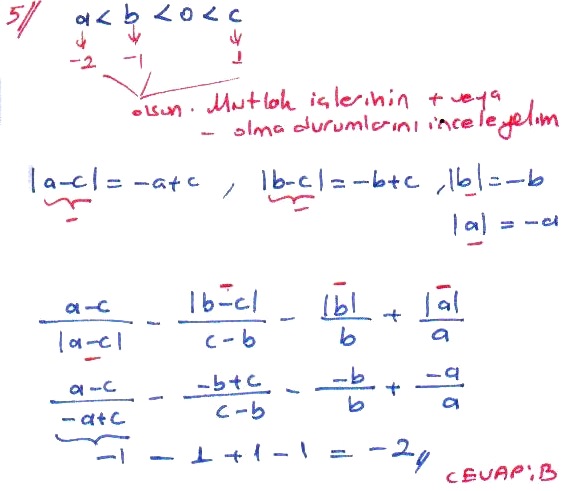 5// a < b < 0 < c
-2 -1 1
olsun. Mutlak içlerinin + veya
- olma durumlarını inceleyelim
|a-c| = -a+c , |b-c| = -b+c , |b| = -b
- - -
|a| = -a
-
- - -
(a-c)/|a-c| - |b-c|/(c-b) - |b|/b + |a|/a
-
(a-c)/(-a+c) - (-b+c)/(c-b) - (-b)/b + (-a)/a
-1 - 1 + 1 - 1 = -2//
CEVAP: B